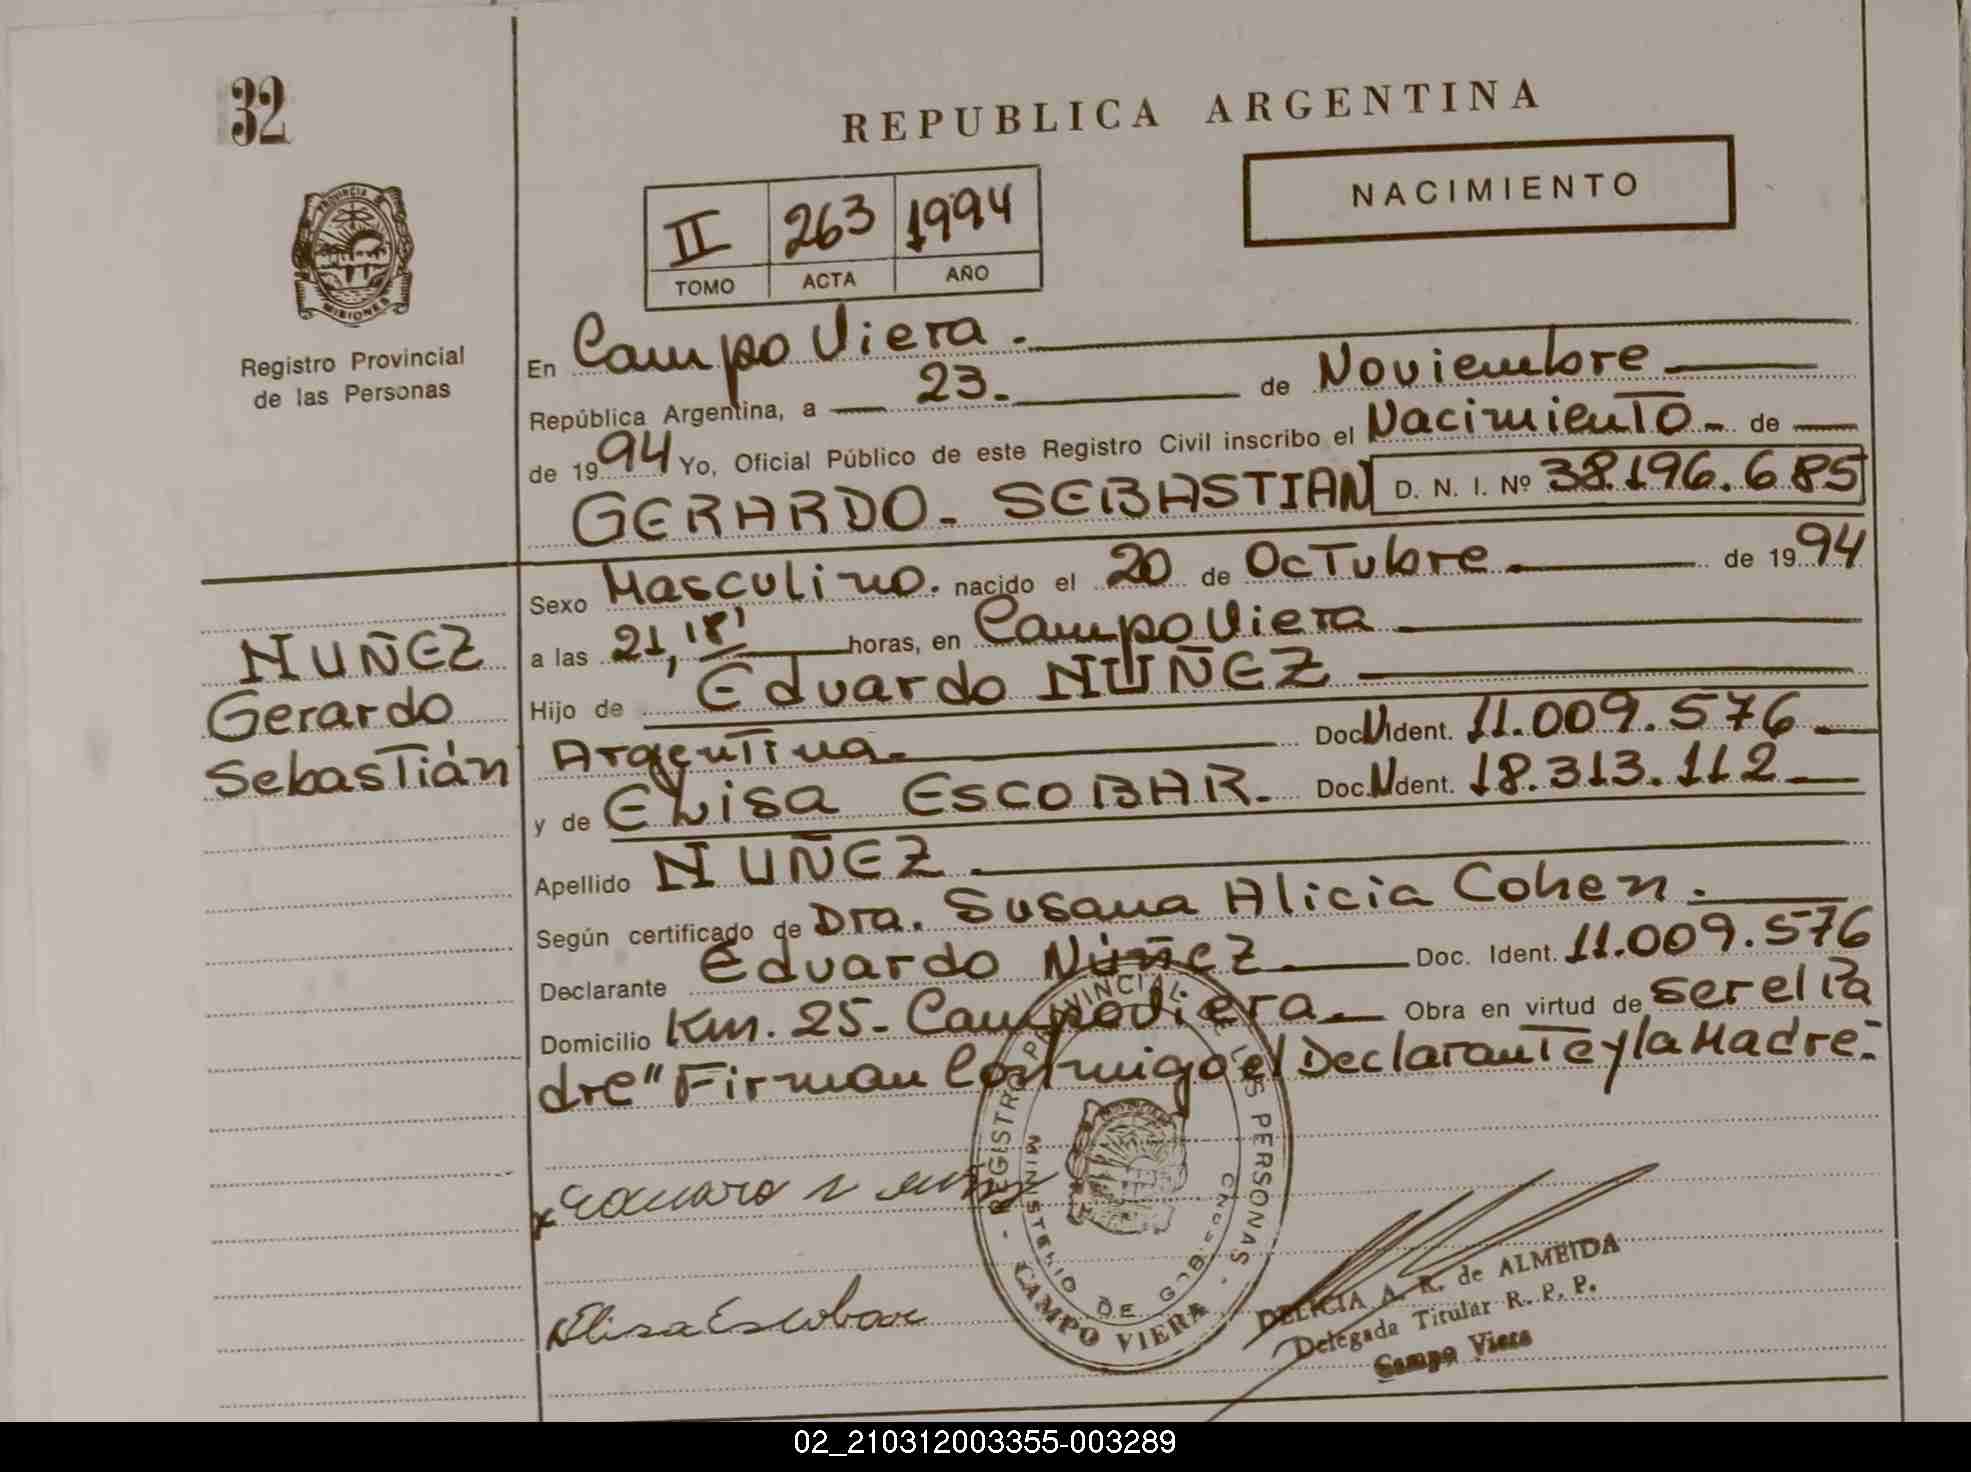 32
REPUBLICA ARGENTINA
NACIMIENTO
II 263 1994
TOMO ACTA AÑO
PROVINCIA
MISIONES
Registro Provincial
de las Personas
En Campo Viera.
República Argentina, a 23. de Noviembre
de 1994 Yo, Oficial Público de este Registro Civil inscribo el Nacimiento de
GERARDO - SEBASTIAN D. N. I. Nº 38.196.685
Sexo Masculino. nacido el 20 de Octubre de 1994
a las 21,18' horas, en Campo Viera
Hijo de Eduardo NUÑEZ
Argentina. Doc. U Ident. 11.009.576
y de ELisa ESCOBAR. Doc. N Ident. 18.313.112
Apellido NUÑEZ
Según certificado de Dra. Susana Alicia Cohen.
Declarante Eduardo Núñez Doc. Ident. 11.009.576
Domicilio Km. 25 - Campo Viera Obra en virtud de ser el Pa
dre" Firman Conmigo el Declarante y la Madre.-
NUÑEZ
Gerardo
Sebastián
Elisa Escobar
REGISTRO PROVINCIAL DE LAS PERSONAS
MINISTERIO DE GOBIERNO
CAMPO VIERA
DELICIA A. R. de ALMEIDA
Delegada Titular R. P. P.
Campo Viera
02_210312003355-003289